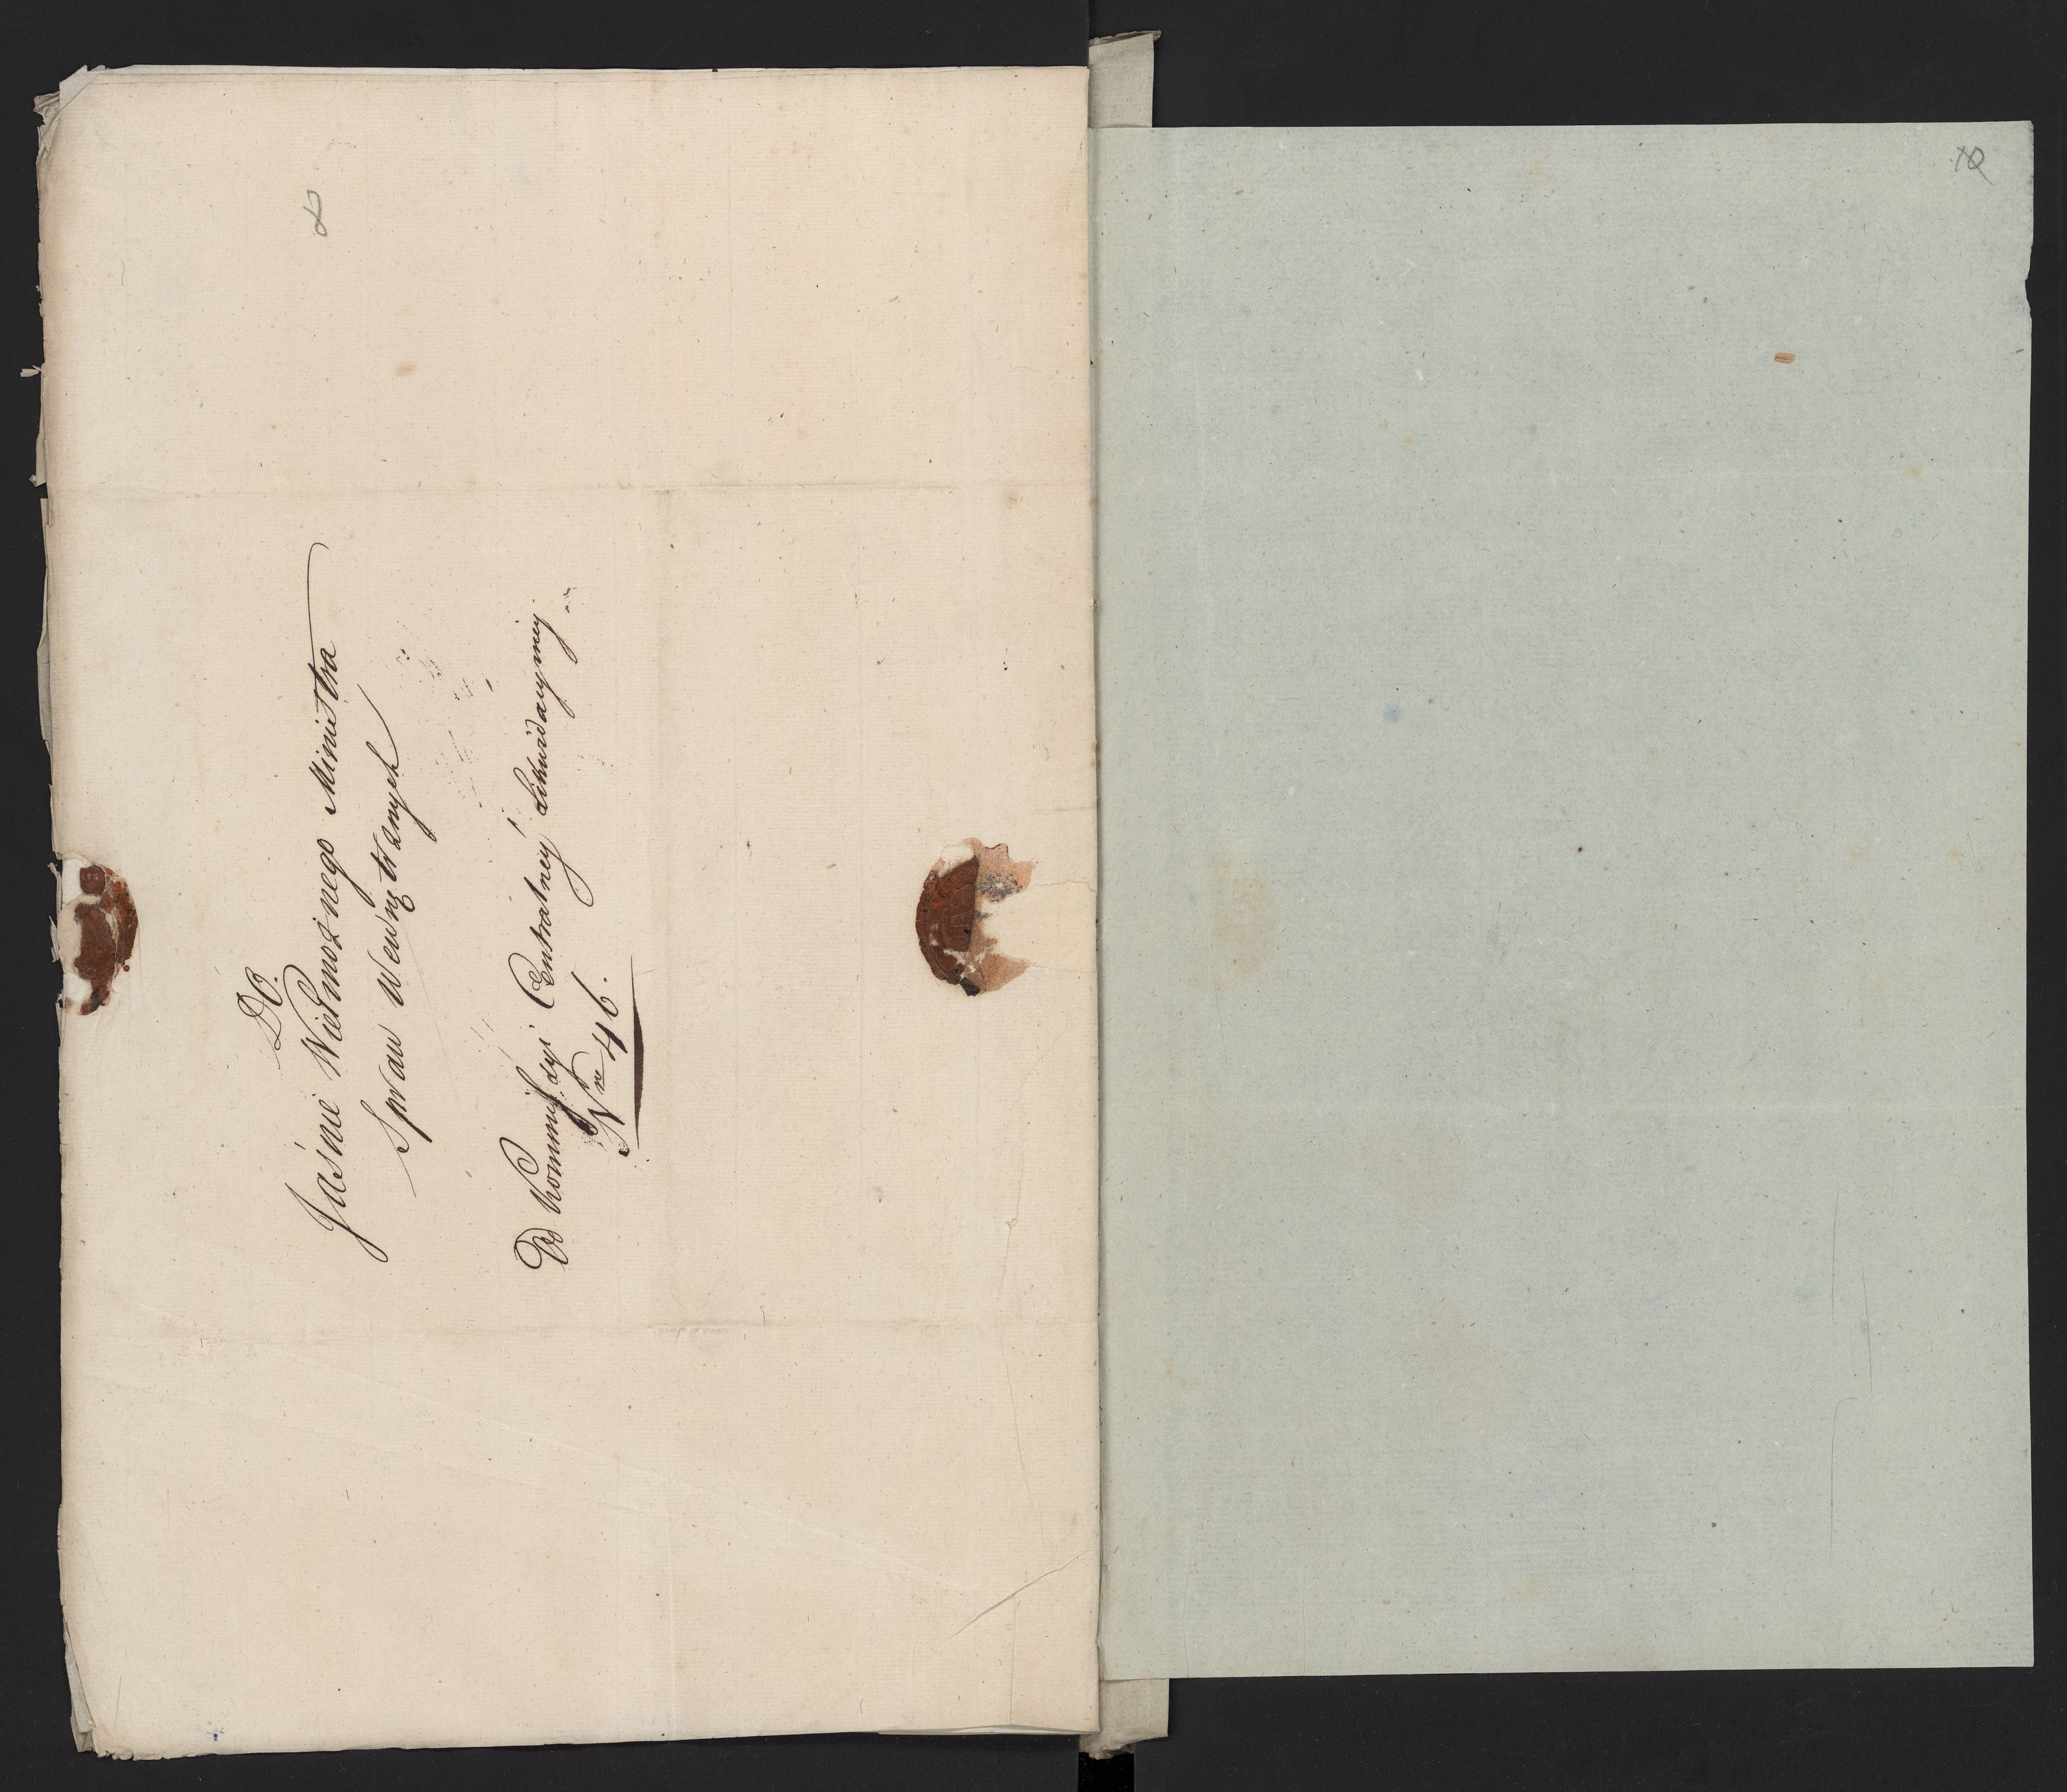 DO.
Jaśnie Wielmożnego Ministra
Spraw Wewnętrznych
Do Kommissyi Centralney Likwidacyiney
Nro 46.
8
10